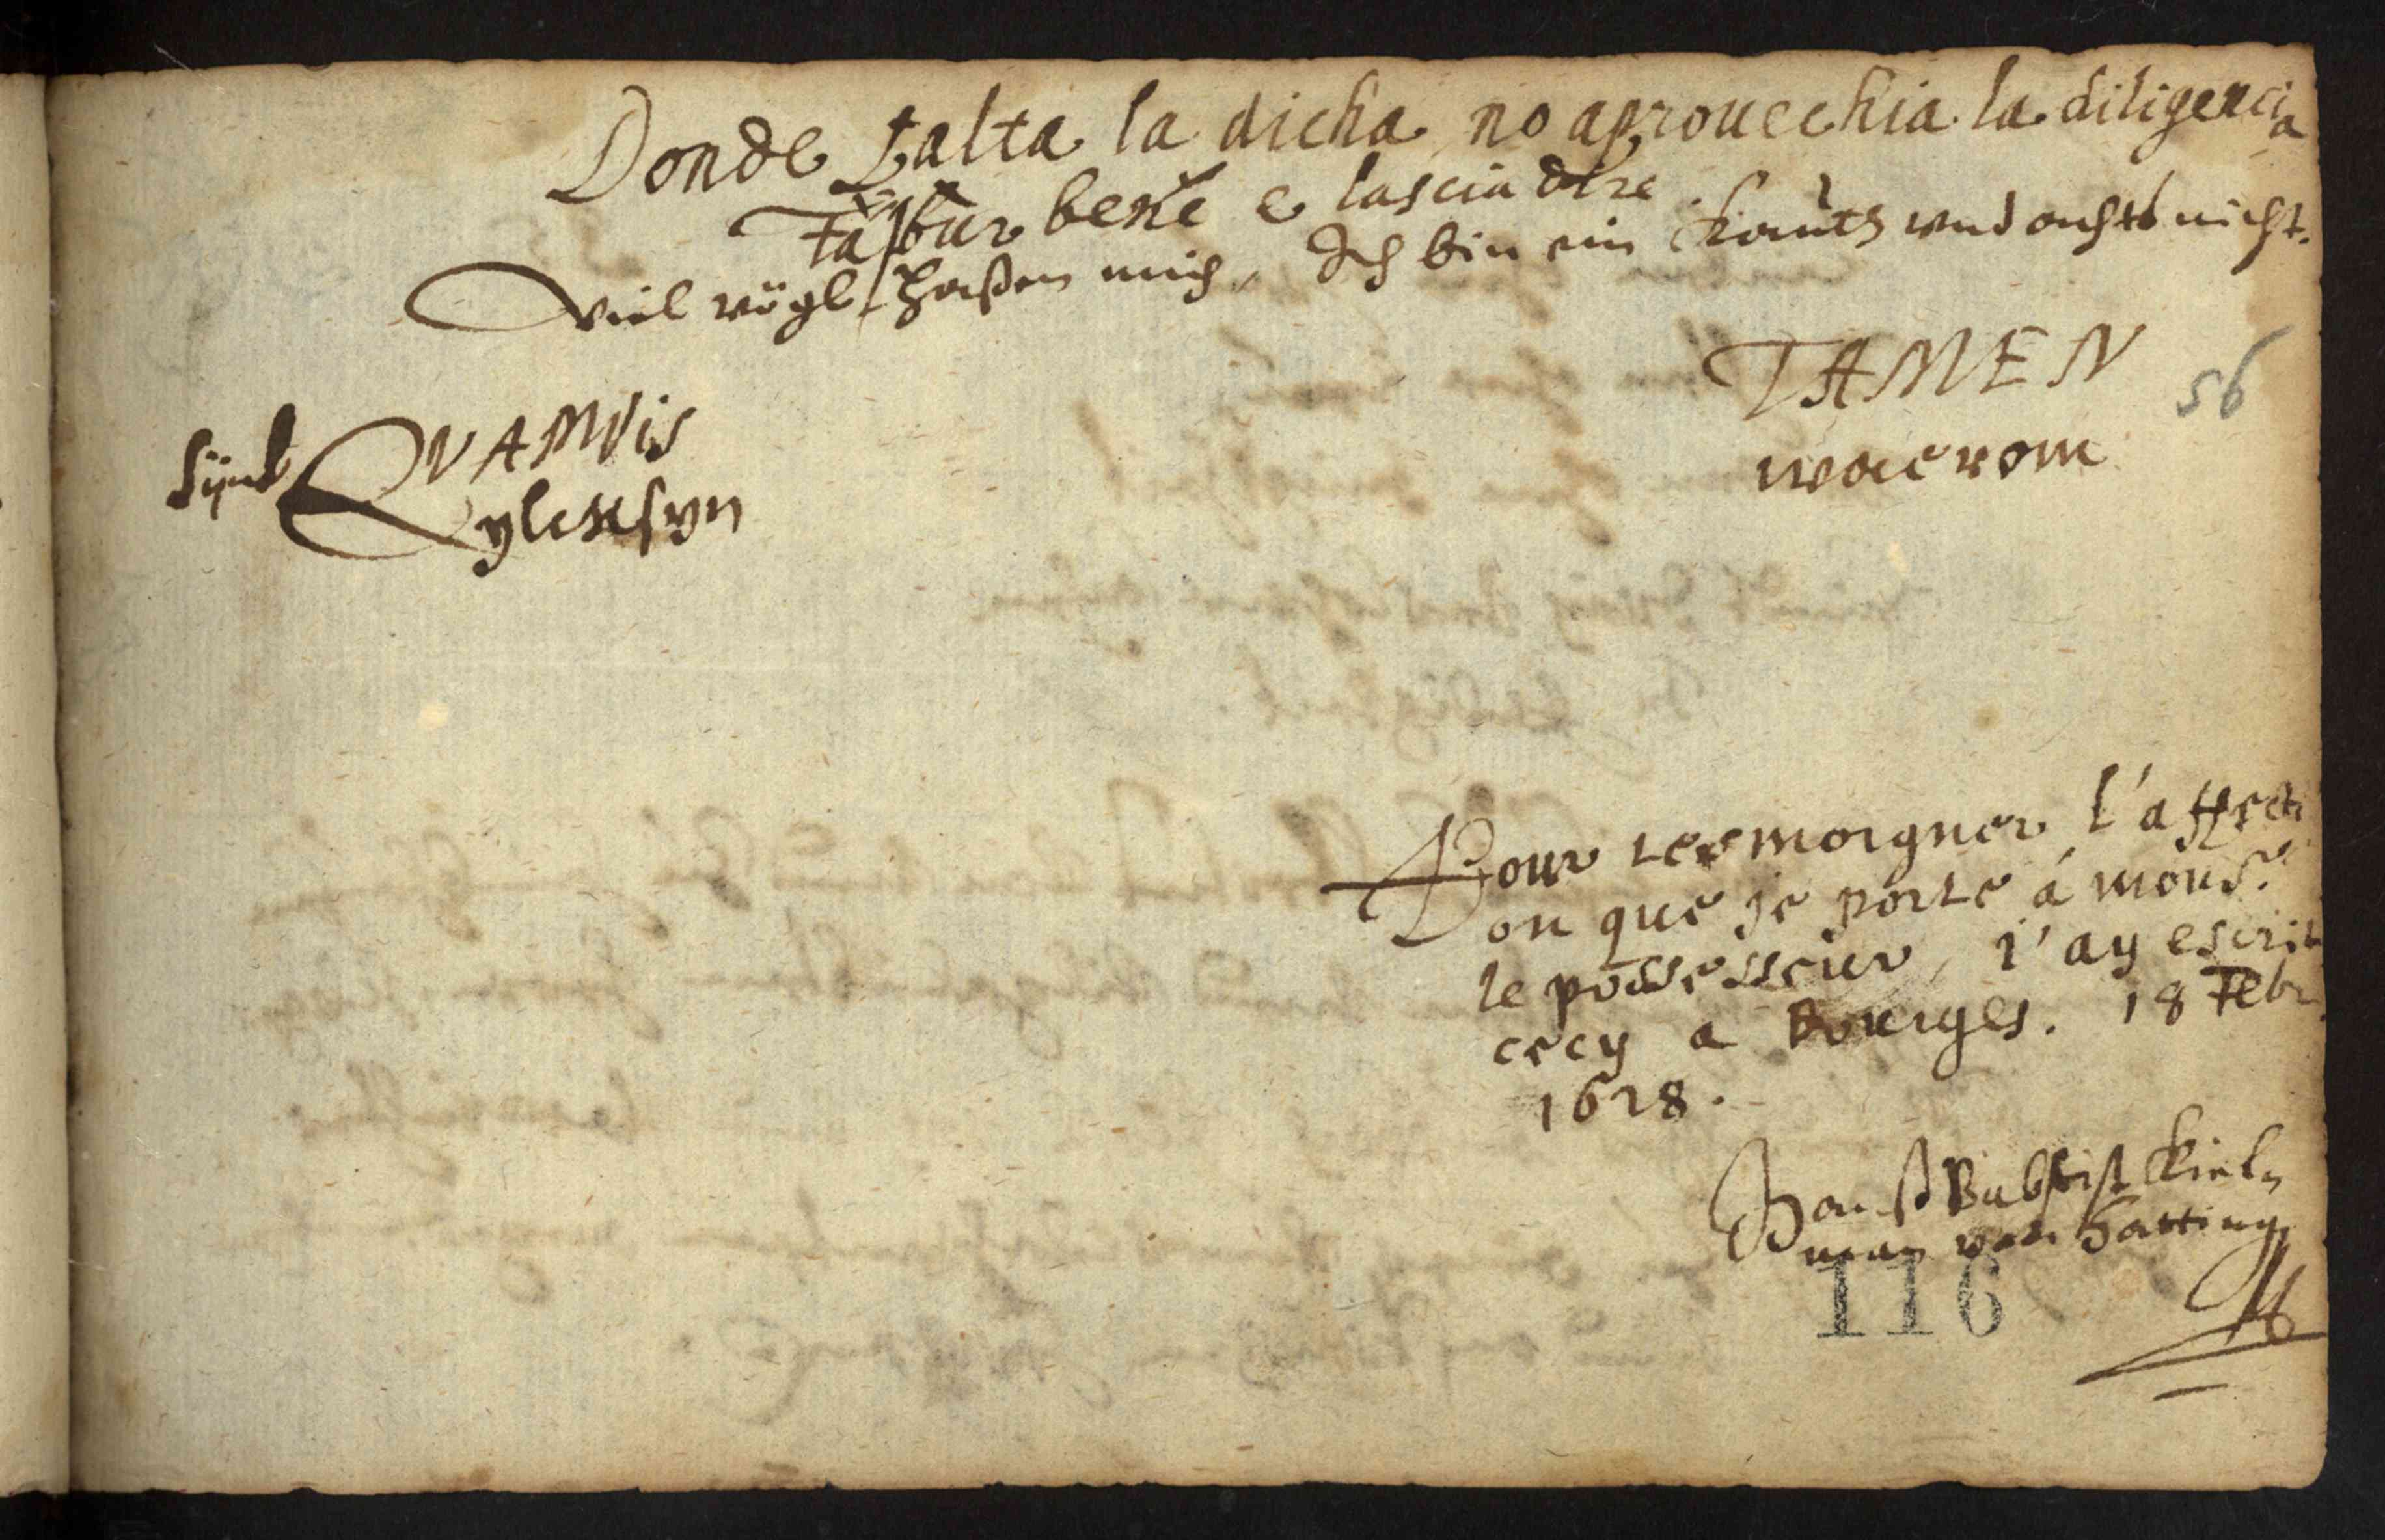 Donde falta la dicha no aprouechia la diligencia
Fa bene e lascia dire
Viel vögl haßen mich, Ich bin ein Kautz vnd achts nicht.
TAMEN
56
QVAMVis
waerom
Pour tesmoigner l'affecti
on que je porte á mons.r
le possesseur, i'ay escrit
cecy a Bourges. 18 Febr.
1628.
Hanß Babtist Kiel,
man von Satting
116